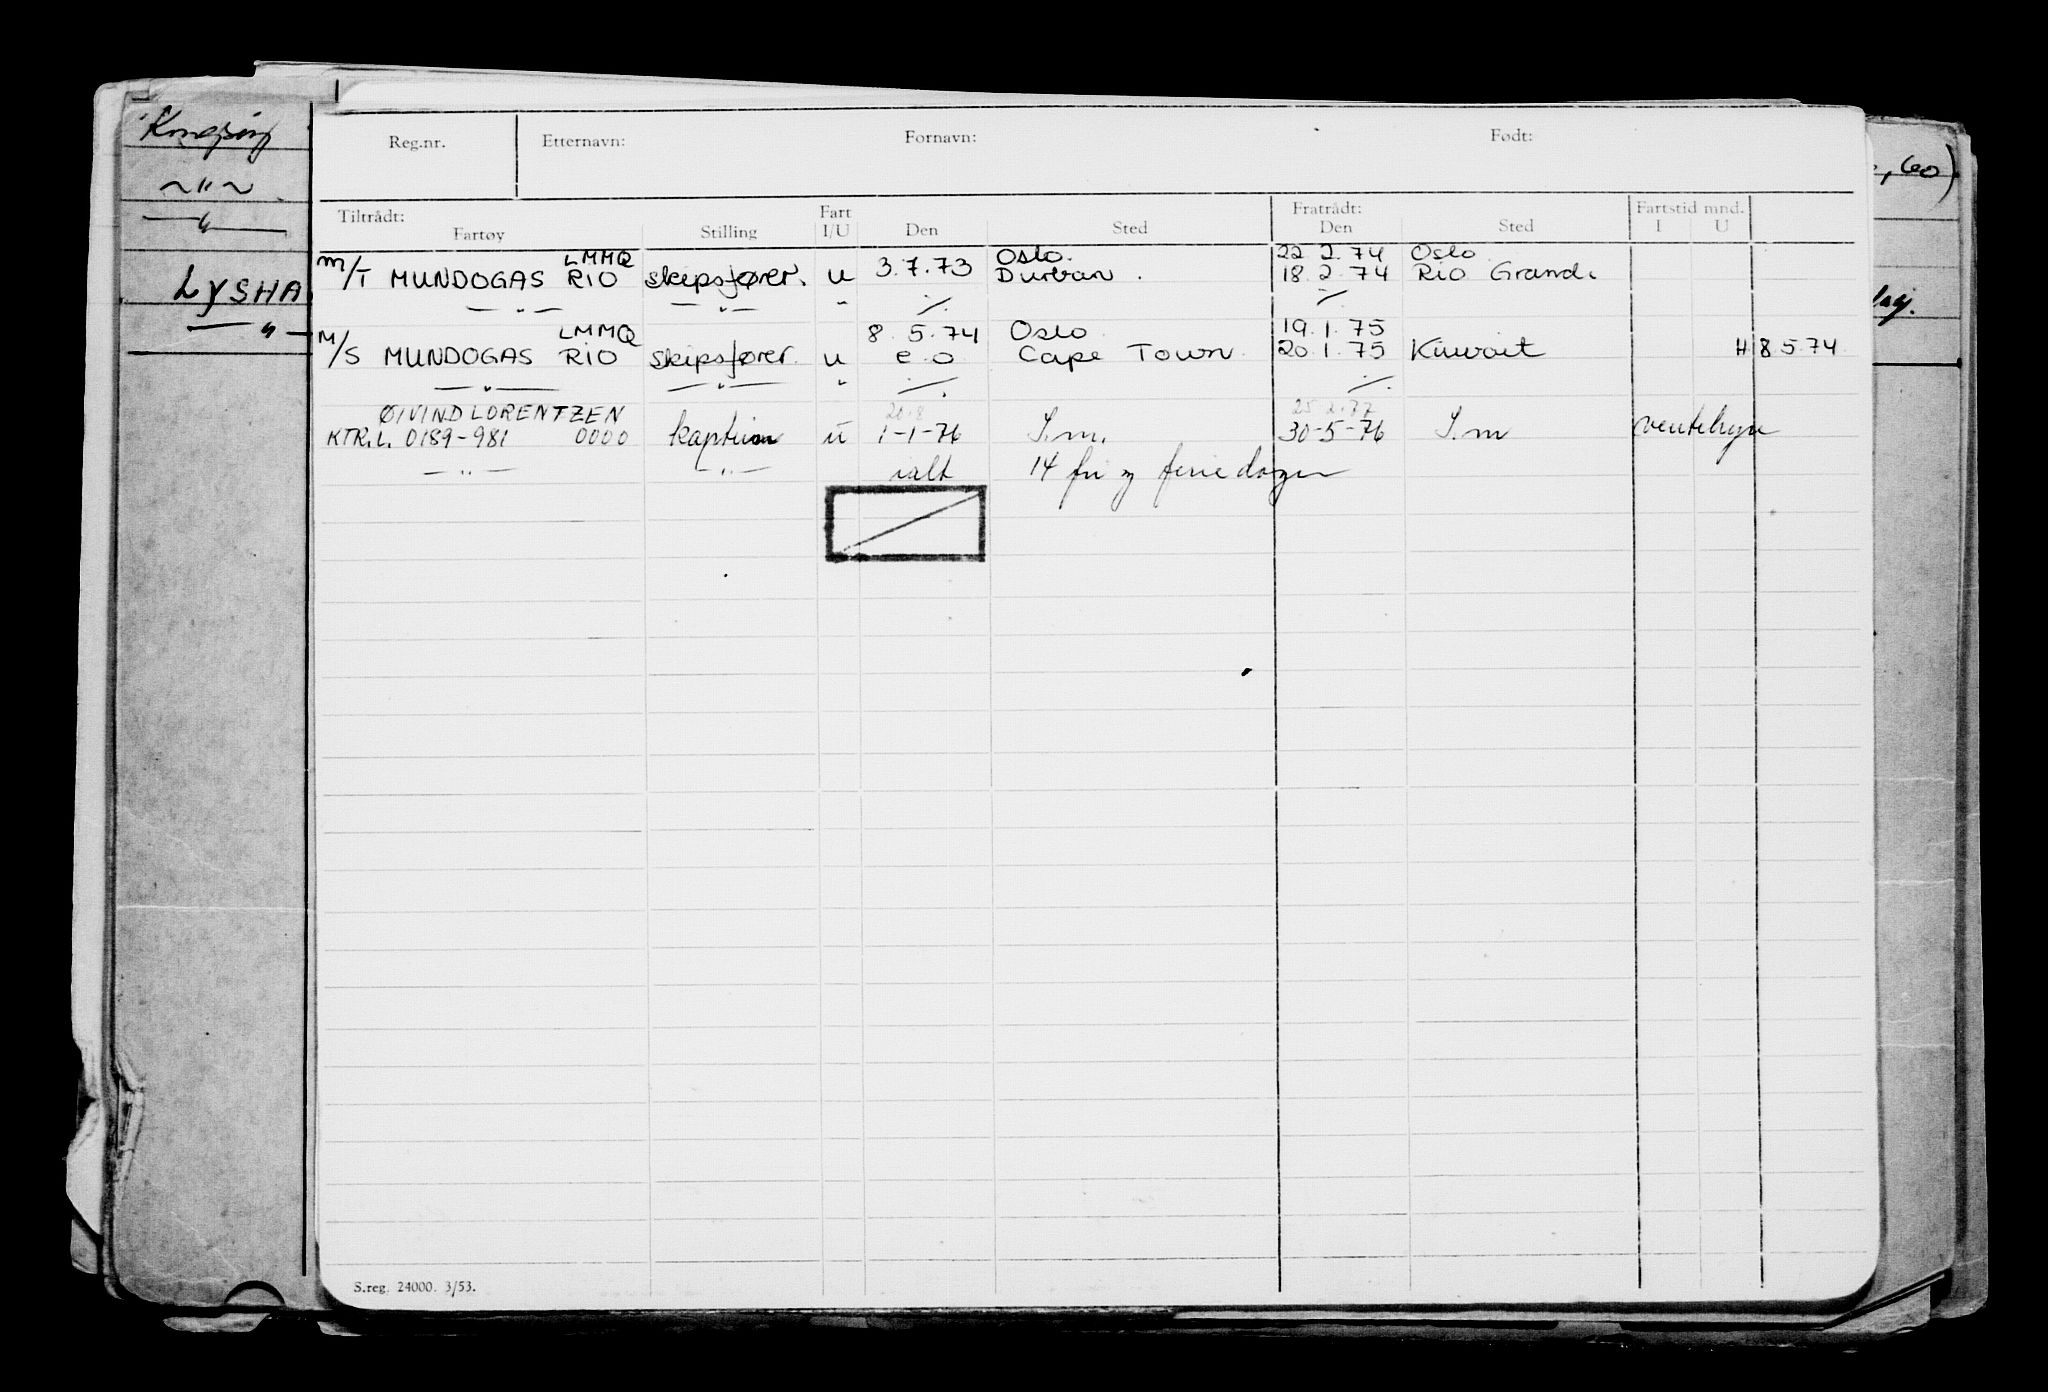 Kongsøy
~"~
—"—
LYSHA
—"—
, 60)
Reg.nr. Etternavn: Fornavn: Født:
Tiltrådt: Fart Fratrådt: Fartstid mnd.
Fartøy Stilling I/U Den Sted Den Sted I U
LMMQ Oslo. 22.2.74 Oslo
M/T MUNDOGAS RIO skipsfører. u 3.7.73 Durban. 18.2.74 Rio Grand.
—"— —"— " ./. ./.
LMMQ 8.5.74 Oslo 19.1.75
M/S MUNDOGAS RIO skipsfører. u e.o Cape Town 20.1.75 Kuwait H 8.5.74
—"— —"— " ./. ./.
ØIVIND LORENTZEN 20.8 25.2.77
KTR.L. 0189-981 0000 kaptein u 1-1-76 S.m. 30-5-76 S.m ventehyre
—"— —"— ialt 14 fri og feriedager
S.reg. 24000. 3/53.